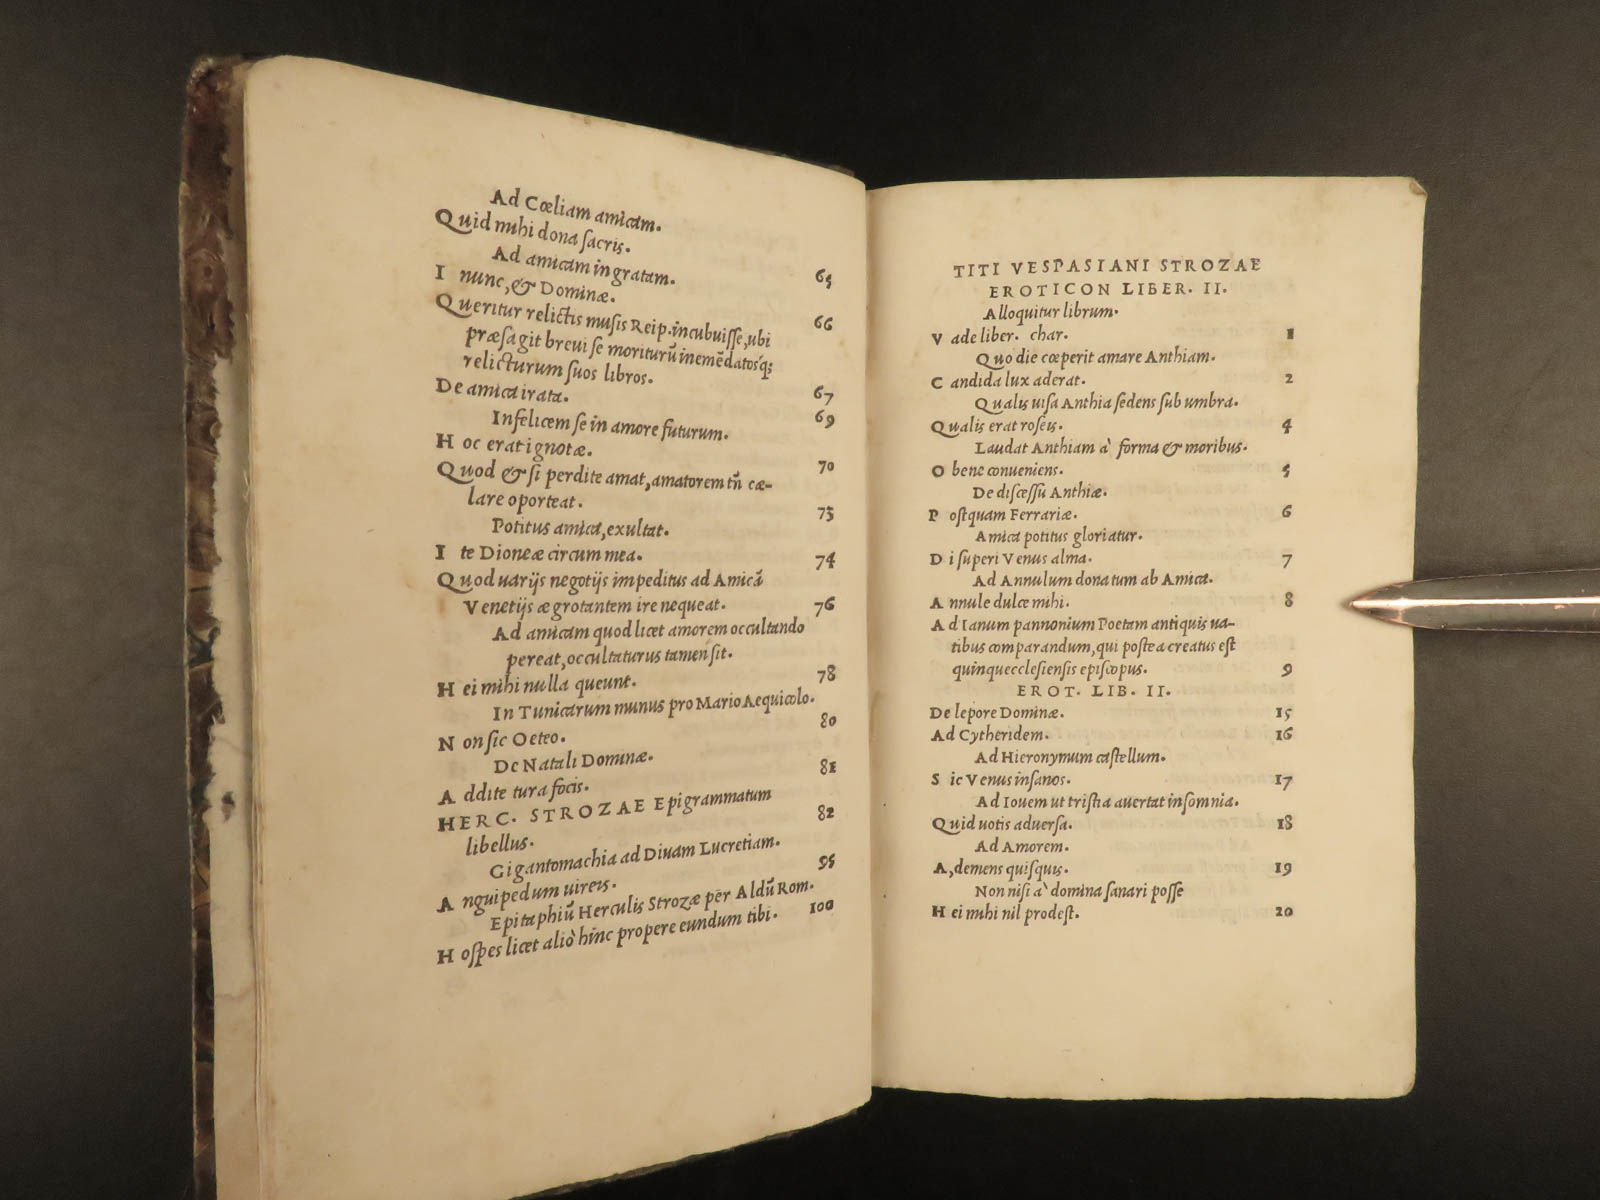 Ad Cœliam amicam.
Quid mihi dona sacris. 65
Ad amicam ingratam.
I nunc, & Dominæ. 66
Queritur relictis musis Reip. incubuisse, ubi
præsagit brevi se moriturũ inemẽdatosq;
relicturum suos libros. 67
De amica irata. 69
Infelicem se in amore futurum.
H oc erat ignotæ. 70
Quod & si perdite amat, amatorem tñ cæ-
lare oporteat. 73
Potitus amica, exultat.
I te Dioneæ circum mea. 74
Quod uarijs negotijs impeditus ad Amicã
Venetijs ægrotantem ire nequeat. 76
Ad amicam quod licet amorem occultando
pereat, occultaturus tamen sit.
H ei mihi nulla queunt. 78
In Tunicarum munus pro Mario Aequicolo.
N on sic Oeteo. 80
De Natali Dominæ.
A ddite tura focis. 81
HERC. STROZAE Epigrammatum
libellus. 82
Gigantomachia ad Diuam Lucretiam.
A nguipedum uireis. 95
Epitaphiũ Herculis Strozæ per Aldũ Rom.
H ospes licet aliò hinc propere eundum tibi. 100
TITI VESPASIANI STROZAE
EROTICON LIBER. II.
Alloquitur librum.
V ade liber. char. 1
Quo die cœperit amare Anthiam.
C andida lux aderat. 2
Qualis uisa Anthia sedens sub umbra.
Qualis erat roseis. 4
Laudat Anthiam à forma & moribus.
O bene conueniens. 5
De discessu Anthiæ.
P ostquam Ferrariæ. 6
Amica potitus gloriatur.
D i superi Venus alma. 7
Ad Annulum donatum ab Amica.
A nnule dulce mihi. 8
Ad Ianum pannonium Poetam antiquis ua-
tibus comparandum, qui postea creatus est
quinqueclesiensis episcopus. 9
EROT. LIB. II.
De lepore Dominæ. 15
Ad Cytheridem. 16
Ad Hieronymum castellum.
S ic Venus insanos. 17
Ad Iouem ut tristia auertat insomnia.
Quid uotis aduersa. 18
Ad Amorem.
A, demens quisquis. 19
Non nisi à domina sanari posse
H ei mihi nil prodest. 20